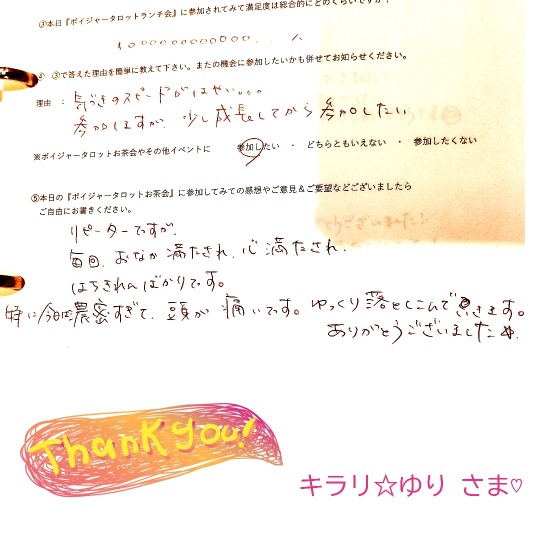 ③本日『ボイジャータロットランチ会』に参加されてみて満足度は総合的にどのくらいですか?
10000000000000... 
④ ③で答えた理由を簡単に教えて下さい。またの機会に参加したいかも併せてお知らせください。
理由 : 気づきのスピードがはやい。。。
参加しますが、少し成長してから参加したい
※ボイジャータロットお茶会やその他イベントに 参加したい ・ どちらともいえない ・ 参加したくない
⑤本日の『ボイジャータロットお茶会』に参加してみての感想やご意見&ご要望などございましたら
ご自由にお書きください。
リピーターですが、
毎回、おなか満たされ、心満たされ、
はちきれんばかりです。
特に今日は濃密すぎて、頭が痛いです。ゆっくり落としこんでいきます。
ありがとうございました
Thank you!
キラリ☆ゆり さま♡